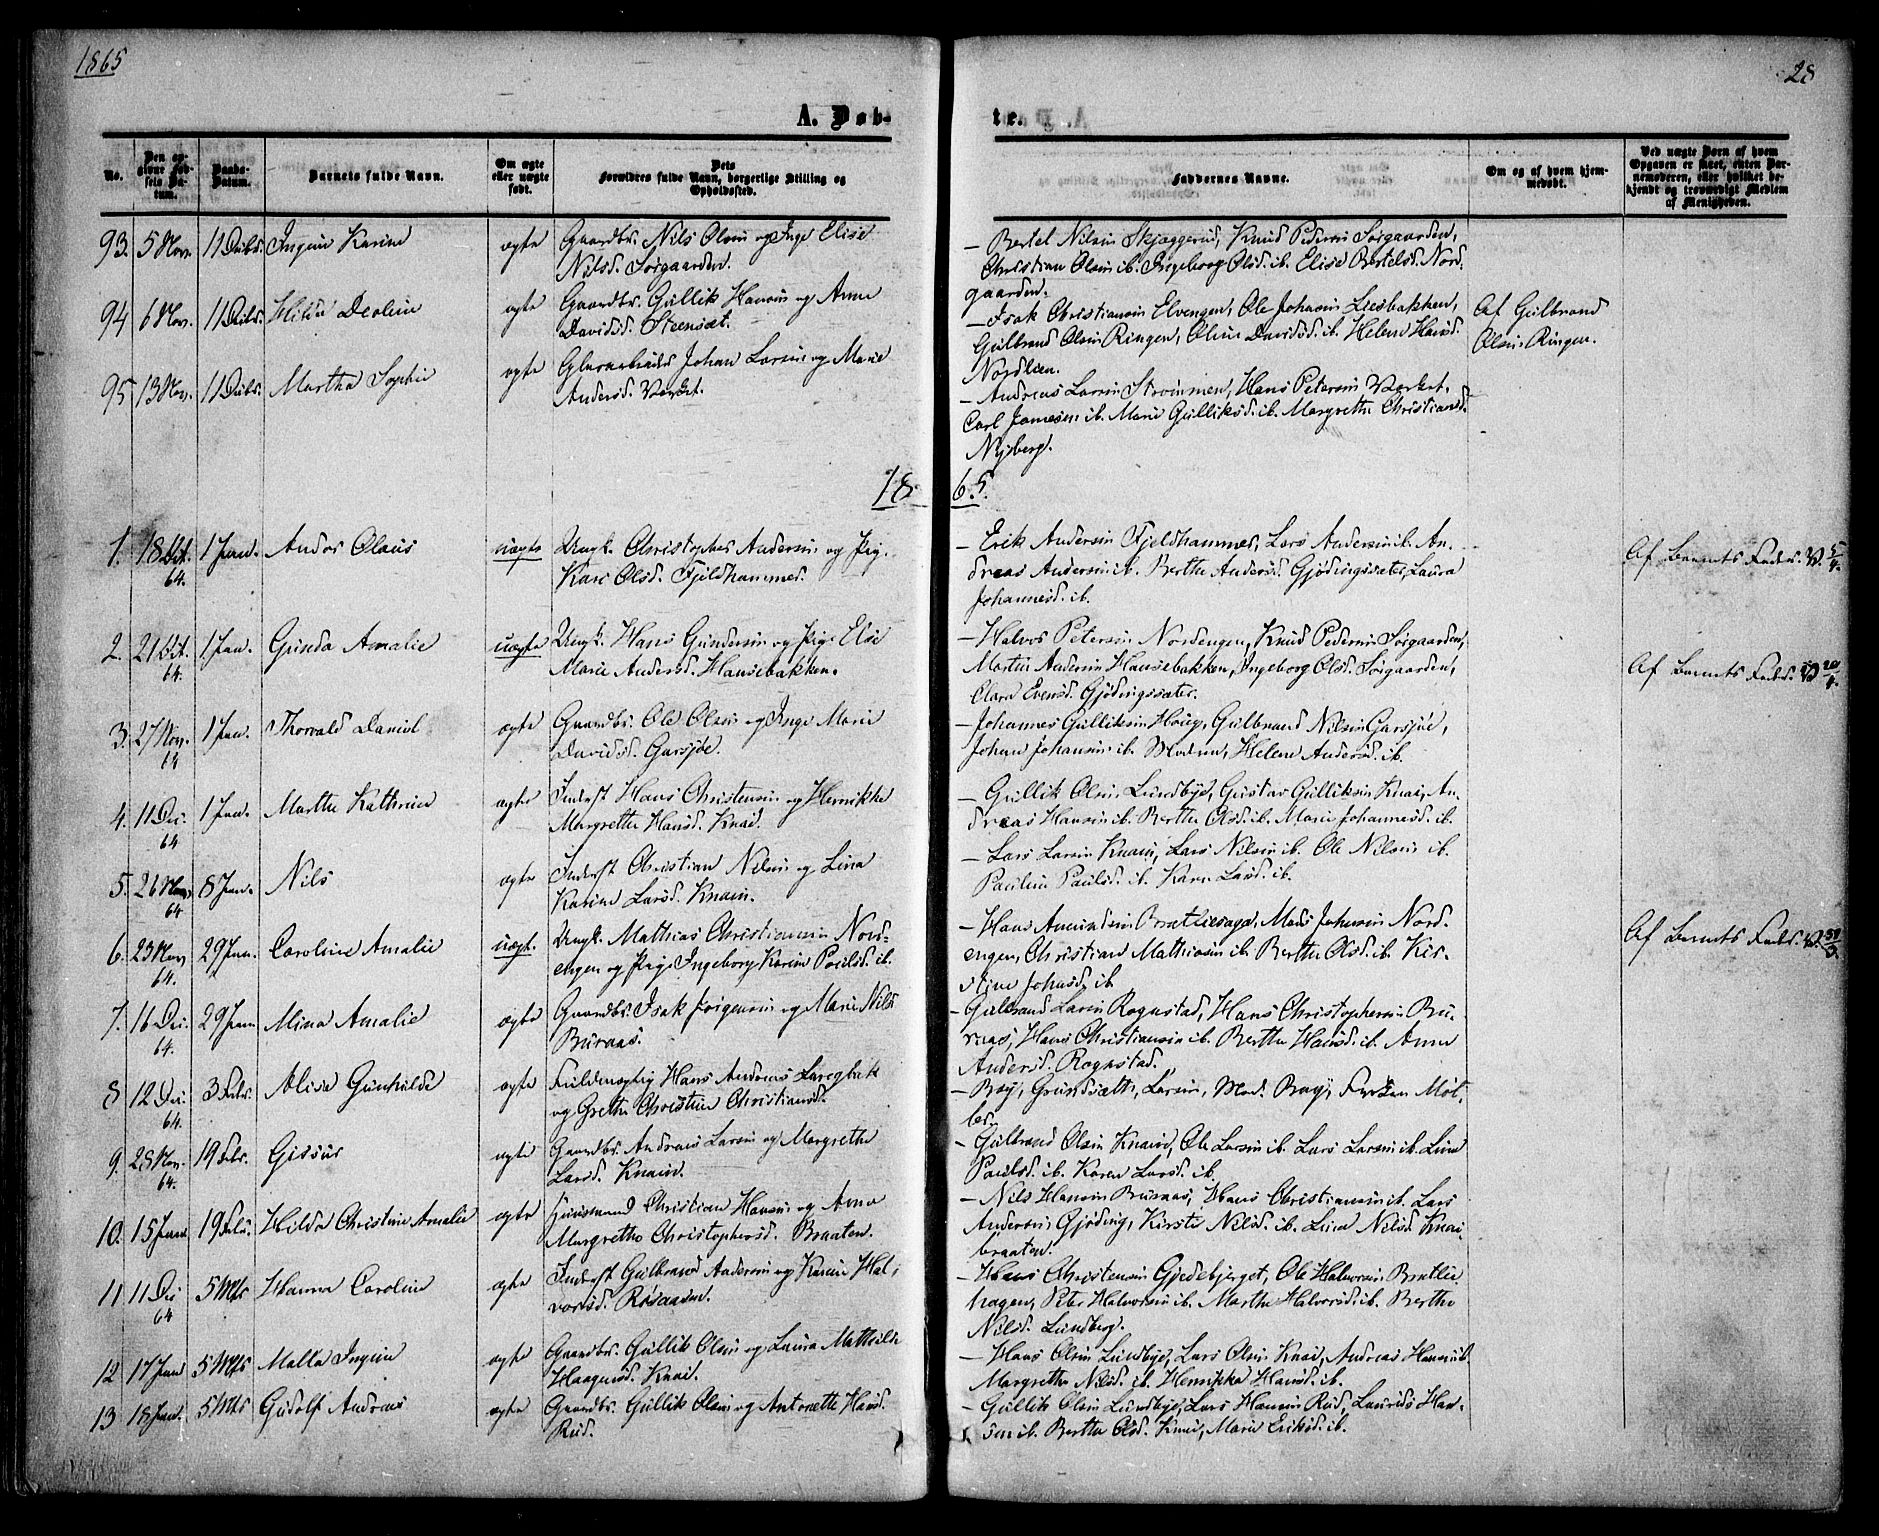 1865
28
A. Døb-
te.
No.
Den opgivne Fødsels Datum.
Daabs-Datum.
Barnets fulde Navn.
Om ægte eller uægte født.
Dets Forældres fulde Navn, borgerlige Stilling og Opholdssted.
Faddernes Navne.
Om og af hvem hjemmedøbt.
Ved uægte Børn af hvem Opgaven er skeet, enten Barnemoderen, eller hvilket bekjendt og troværdigt Medlem af Menigheden.
93. 5 Nov. 11 Decbr. Ingeni Karine ægte Gaardbr. Nils Olsen og Inge Elise
Nilsd. Sørgaarden.
– Bertel Nilsen Skjæggerud, Knud Pedersen Sørgaarden,
Christian Olsen ib. Ingeborg Olsd. ib. Elise Bertelsd. Nord-
gaarden.
94 6 Nov. 11 Decbr. Hilda Deoline ægte Gaardbr. Gullik Hansen og Anne
Davidsd. Steensæt.
– Isak Christiansen Elvengen, Ole Johansen Liesbakken,
Gulbrand Olsen Ringen, Oline Davidsd. ib. Helene Hansd.
Nordlien.
Af Gulbrand
Olsen Ringen.
95 13 Nov. 11 Decbr. Martha Sophie ægte Glasarbeider Johan Larsen og Marie
Andersd. Værket.
– Andreas Larsen Strømmen, Hans Petersen Værket,
Carl Jamesen ib. Marie Gulliksd. ib. Margrethe Christiansd.
Nyberg.
18 65.
1. 18 Oct. 64. 1 Jan. Andor Olaus uægte Ungk. Christopher Andersen og Pig.
Kari Olsd. Fjeldhammer.
– Erik Andersen Fjeldhammer, Lars Andersen ib. An-
dreas Andersen ib. Berthe Andersd. Gjødingssæter, Laura
Johannesd. ib.
Af Barnets Fader. 5/4.
2. 21 Oct. 64. 1 Jan. Gunda Amalie uægte Ungk. Hans Gundersen og Pige Else
Marie Andersd. Hansebakken.
– Halvor Petersen Nordengen, Knud Pedersen Sørgaarden,
Martin Andersen Hansebakken, Ingeborg Olsd. Sørgaarden,
Clara Evensd. Gjødingssæter.
Af Barnets Fader. 20/4.
3. 27 Nov. 64 1 Jan. Thorvald Daniel ægte Gaardbr. Ole Olsen og Inge Marie
Davidsd. Garsjøe.
– Johannes Gulliksen Houg, Gulbrand Nilsen Garsjøe,
Johan Johansen ib. Moderen, Helene Andersd. ib.
4. 11 Dec. 64 1 Jan. Marthe Kathrine ægte Inderst Hans Christensen og Henrikke
Margrethe Hansd. Knai.
– Gullik Olsen Lundbye, Gustav Gulliksen Knai, An-
dreas Hansen ib. Berthe Olsd. ib. Marie Johannesd. ib.
5. 26 Nov. 64 8 Jan. Nils ægte Inderst Christian Nilsen og Lina
Karine Larsd. Knain.
– Lars Larsen Knain, Lars Nilsen ib. Ole Nilsen ib.
Pauline Paulsd. ib. Karen Larsd. ib.
6. 23 Nov 64. 29 Jan. Caroline Amalie uægt. Ungk. Mathias Christiansen Nord-
engen og Pige Ingeborg Karine Poulsd. ib.
– Hans Amundsen Bratliehagen, Mads Johansen Nord-
engen, Christian Mathiasen ib. Berthe Olsd. ib. Kir-
stine Johansd. ib
Af Barnets Fader.
7. 16 Dec. 64. 29 Jan Mina Amalie ægte Gaardbr. Isak Jørgensen og Marie Nilsd
Buraas.
– Gulbrand Larsen Rognstad, Hans Christophersen Bu-
raas, Hans Christiansen ib. Berthe Hansd. ib. Anne
Andersd. Rognstad.
8 12 Dec. 64. 3 Febr. Alise Gunhilde ægte Fuldmægtig Hans Andreas
og Grethe Christine Christiansd.
– Larsen, Mad.
ler.
9. 28 Nov. 64. 19 Febr. Gissur ægte Gaardbr. Andreas Larsen og Margrethe
Larsd. Knain.
– Gulbrand Olsen Knain, Ole Larsen ib. Lars Larsen ib. Lina
Paulsd. ib. Karen Larsd. ib.
10. 15 Jan 19 Febr. Hilda Christine Amalie ægte Huusmand Christian Hansen og Anna
Margrethe Christophersd. Braaten.
– Nils Hansen Buraas, Hans Christiansen ib. Lars
Andersen Gjøding, Kirsti Nilsd. ib. Lina Nilsd. Knai-
braaten.
11 11 Dec 64 5 Mts Hanna Caroline ægte Inderst Gulbrand Andersen og Karine Hal-
vorsd. Rösaasen.
– Hans Christensen Gjedebjerget, Ole Halvorsen Bratlie
hagen, Peter Halvorsen ib. Marthe Halvorsd. ib. Berthe
Nilsd. Lundberg.
12 17 Jan 5 Mts Malla Ingeni ægte Gaardbr. Gullik Olsen og Laura Mathilde
Haagensd. Knai.
– Hans Olsen Lundbye, Lars Olsen Knai, Andreas Hansen ib.
Margrethe Nilsd. ib. Henrikke Hansd. ib.
13 18 Jan. 5 Mts Gudolf Andreas ægte Gaardbr. Gullik Olsen og Antonette Hansd.
Rud.
– Gullik Olsen Lundbye, Lars Hansen Rud, Laurids Han-
sen ib. Berthe Olsd. Knai, Marie Eriksd. ib.